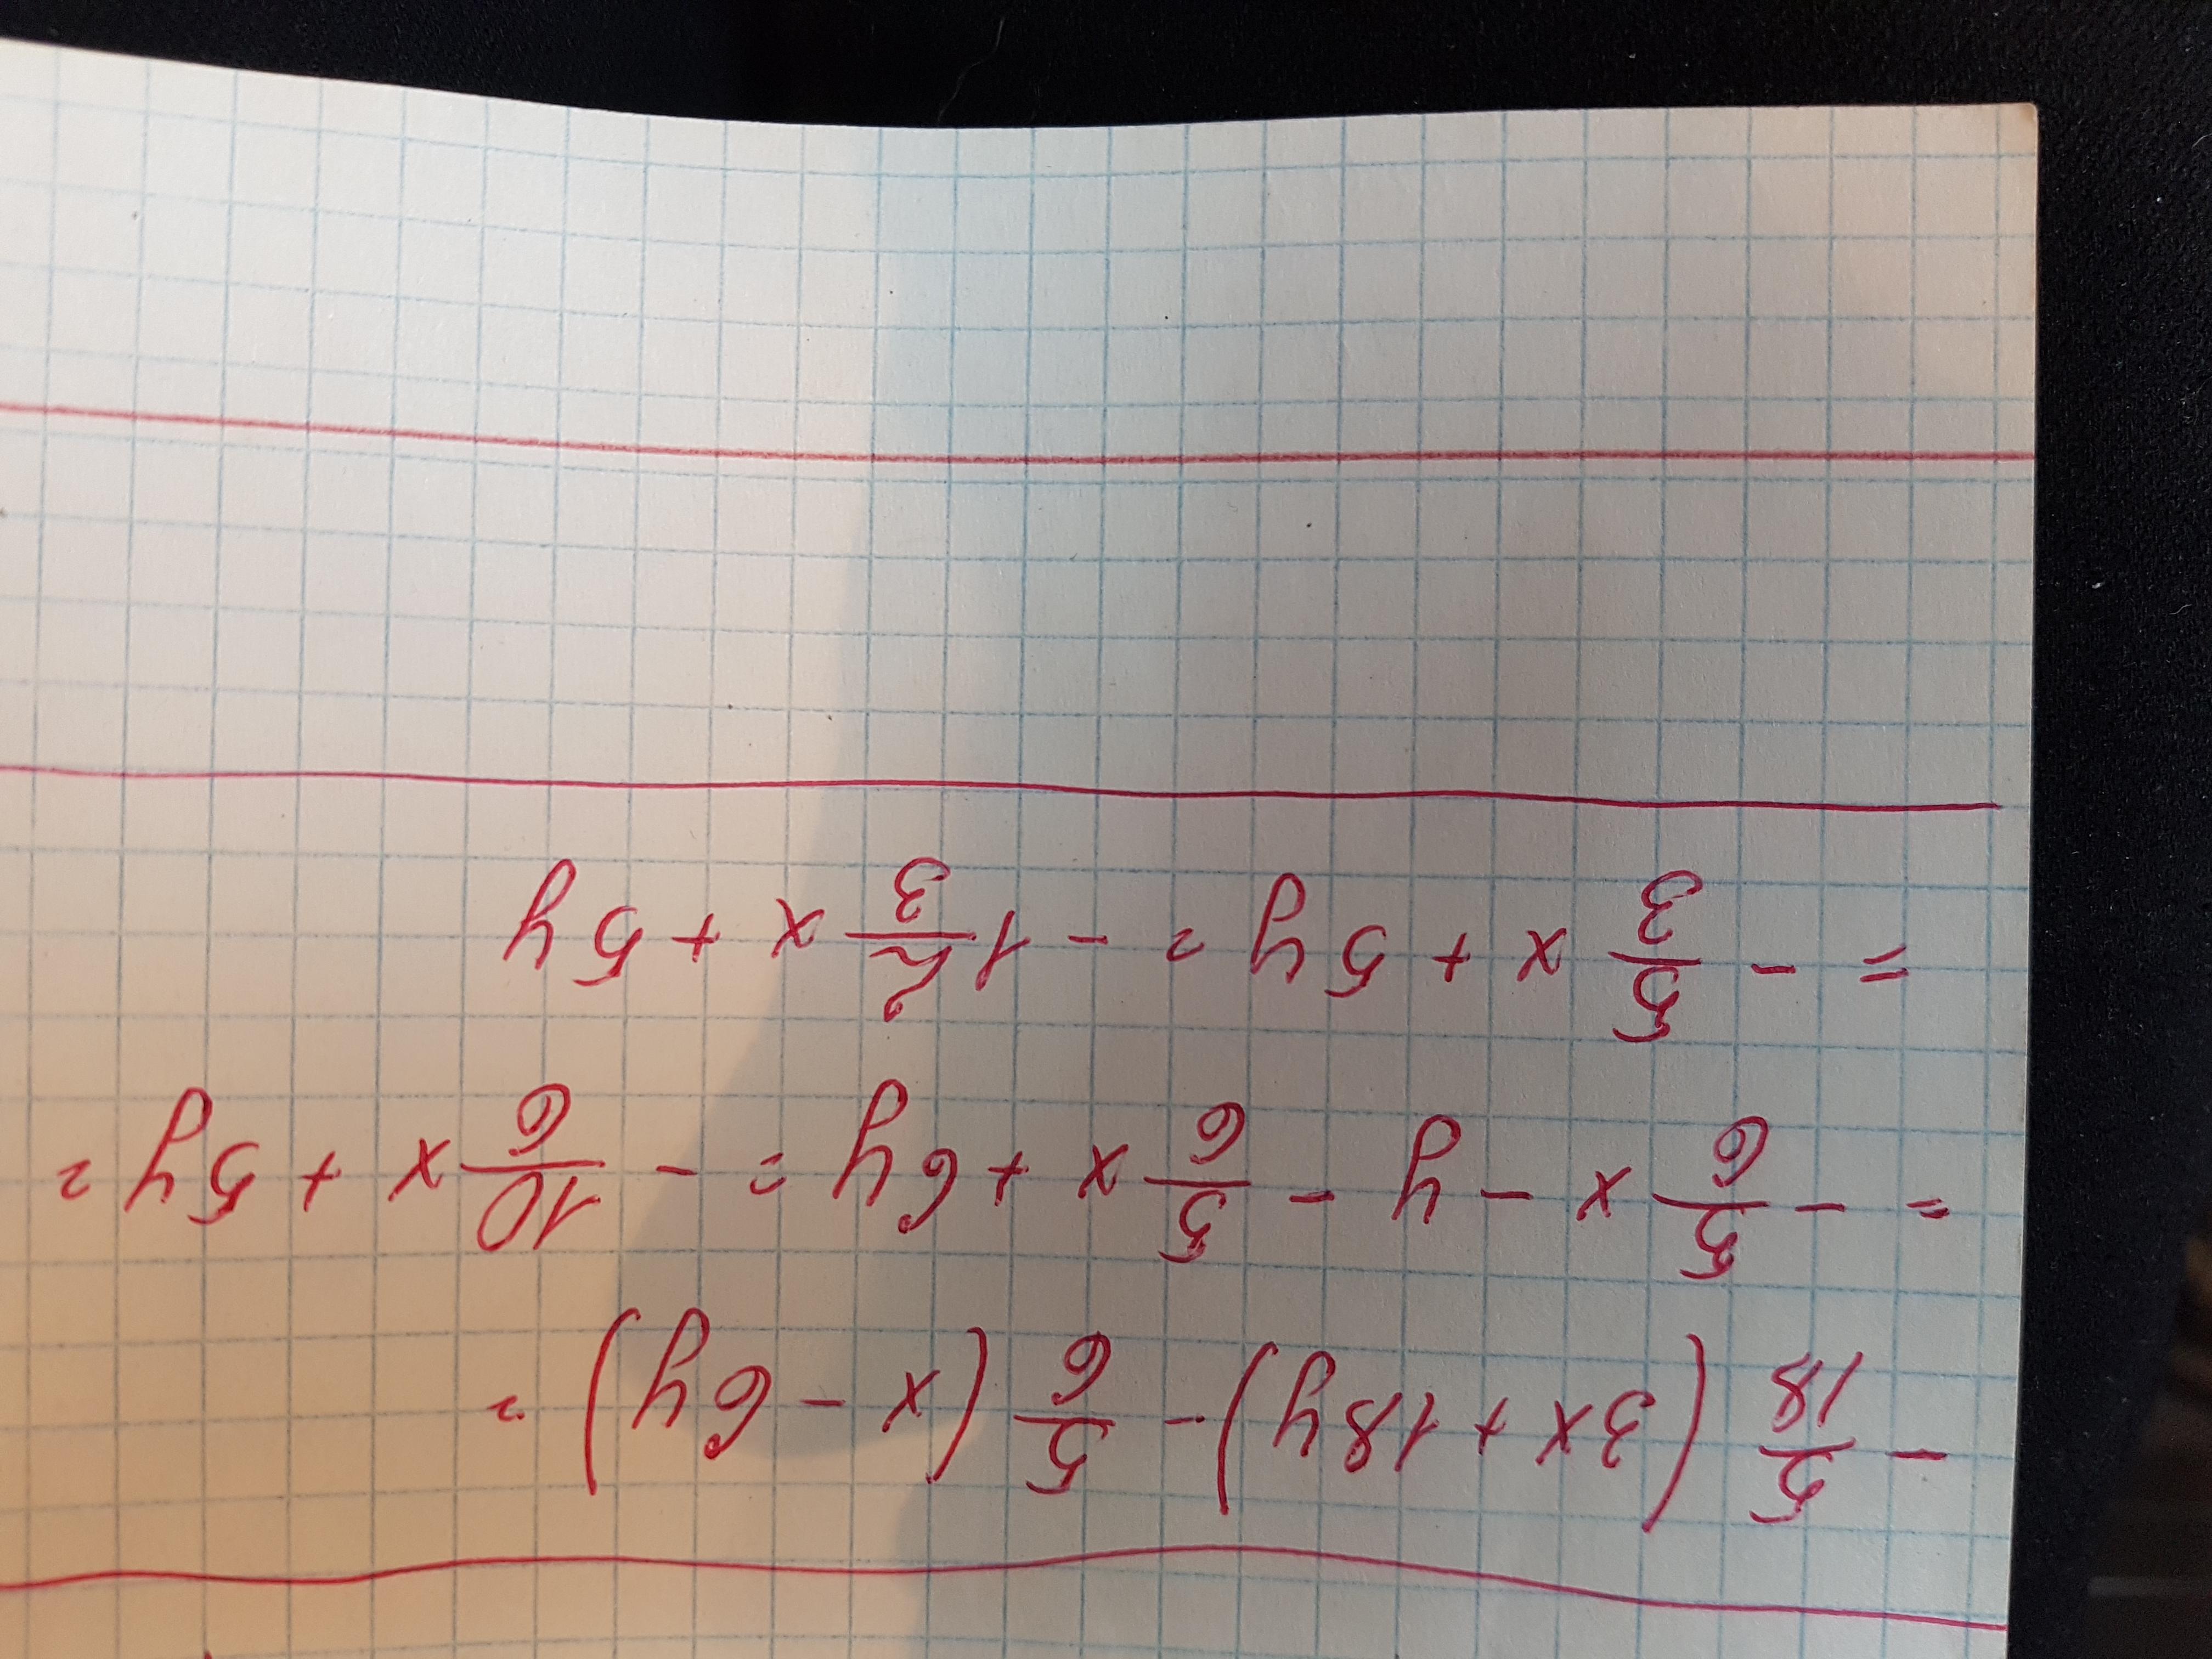 - 5/18 (3x + 18y) - 5/6 (x - 6y) =
= - 5/6 x - y - 5/6 x + 6y = - 10/6 x + 5y =
= - 5/3 x + 5y = - 1 2/3 x + 5y